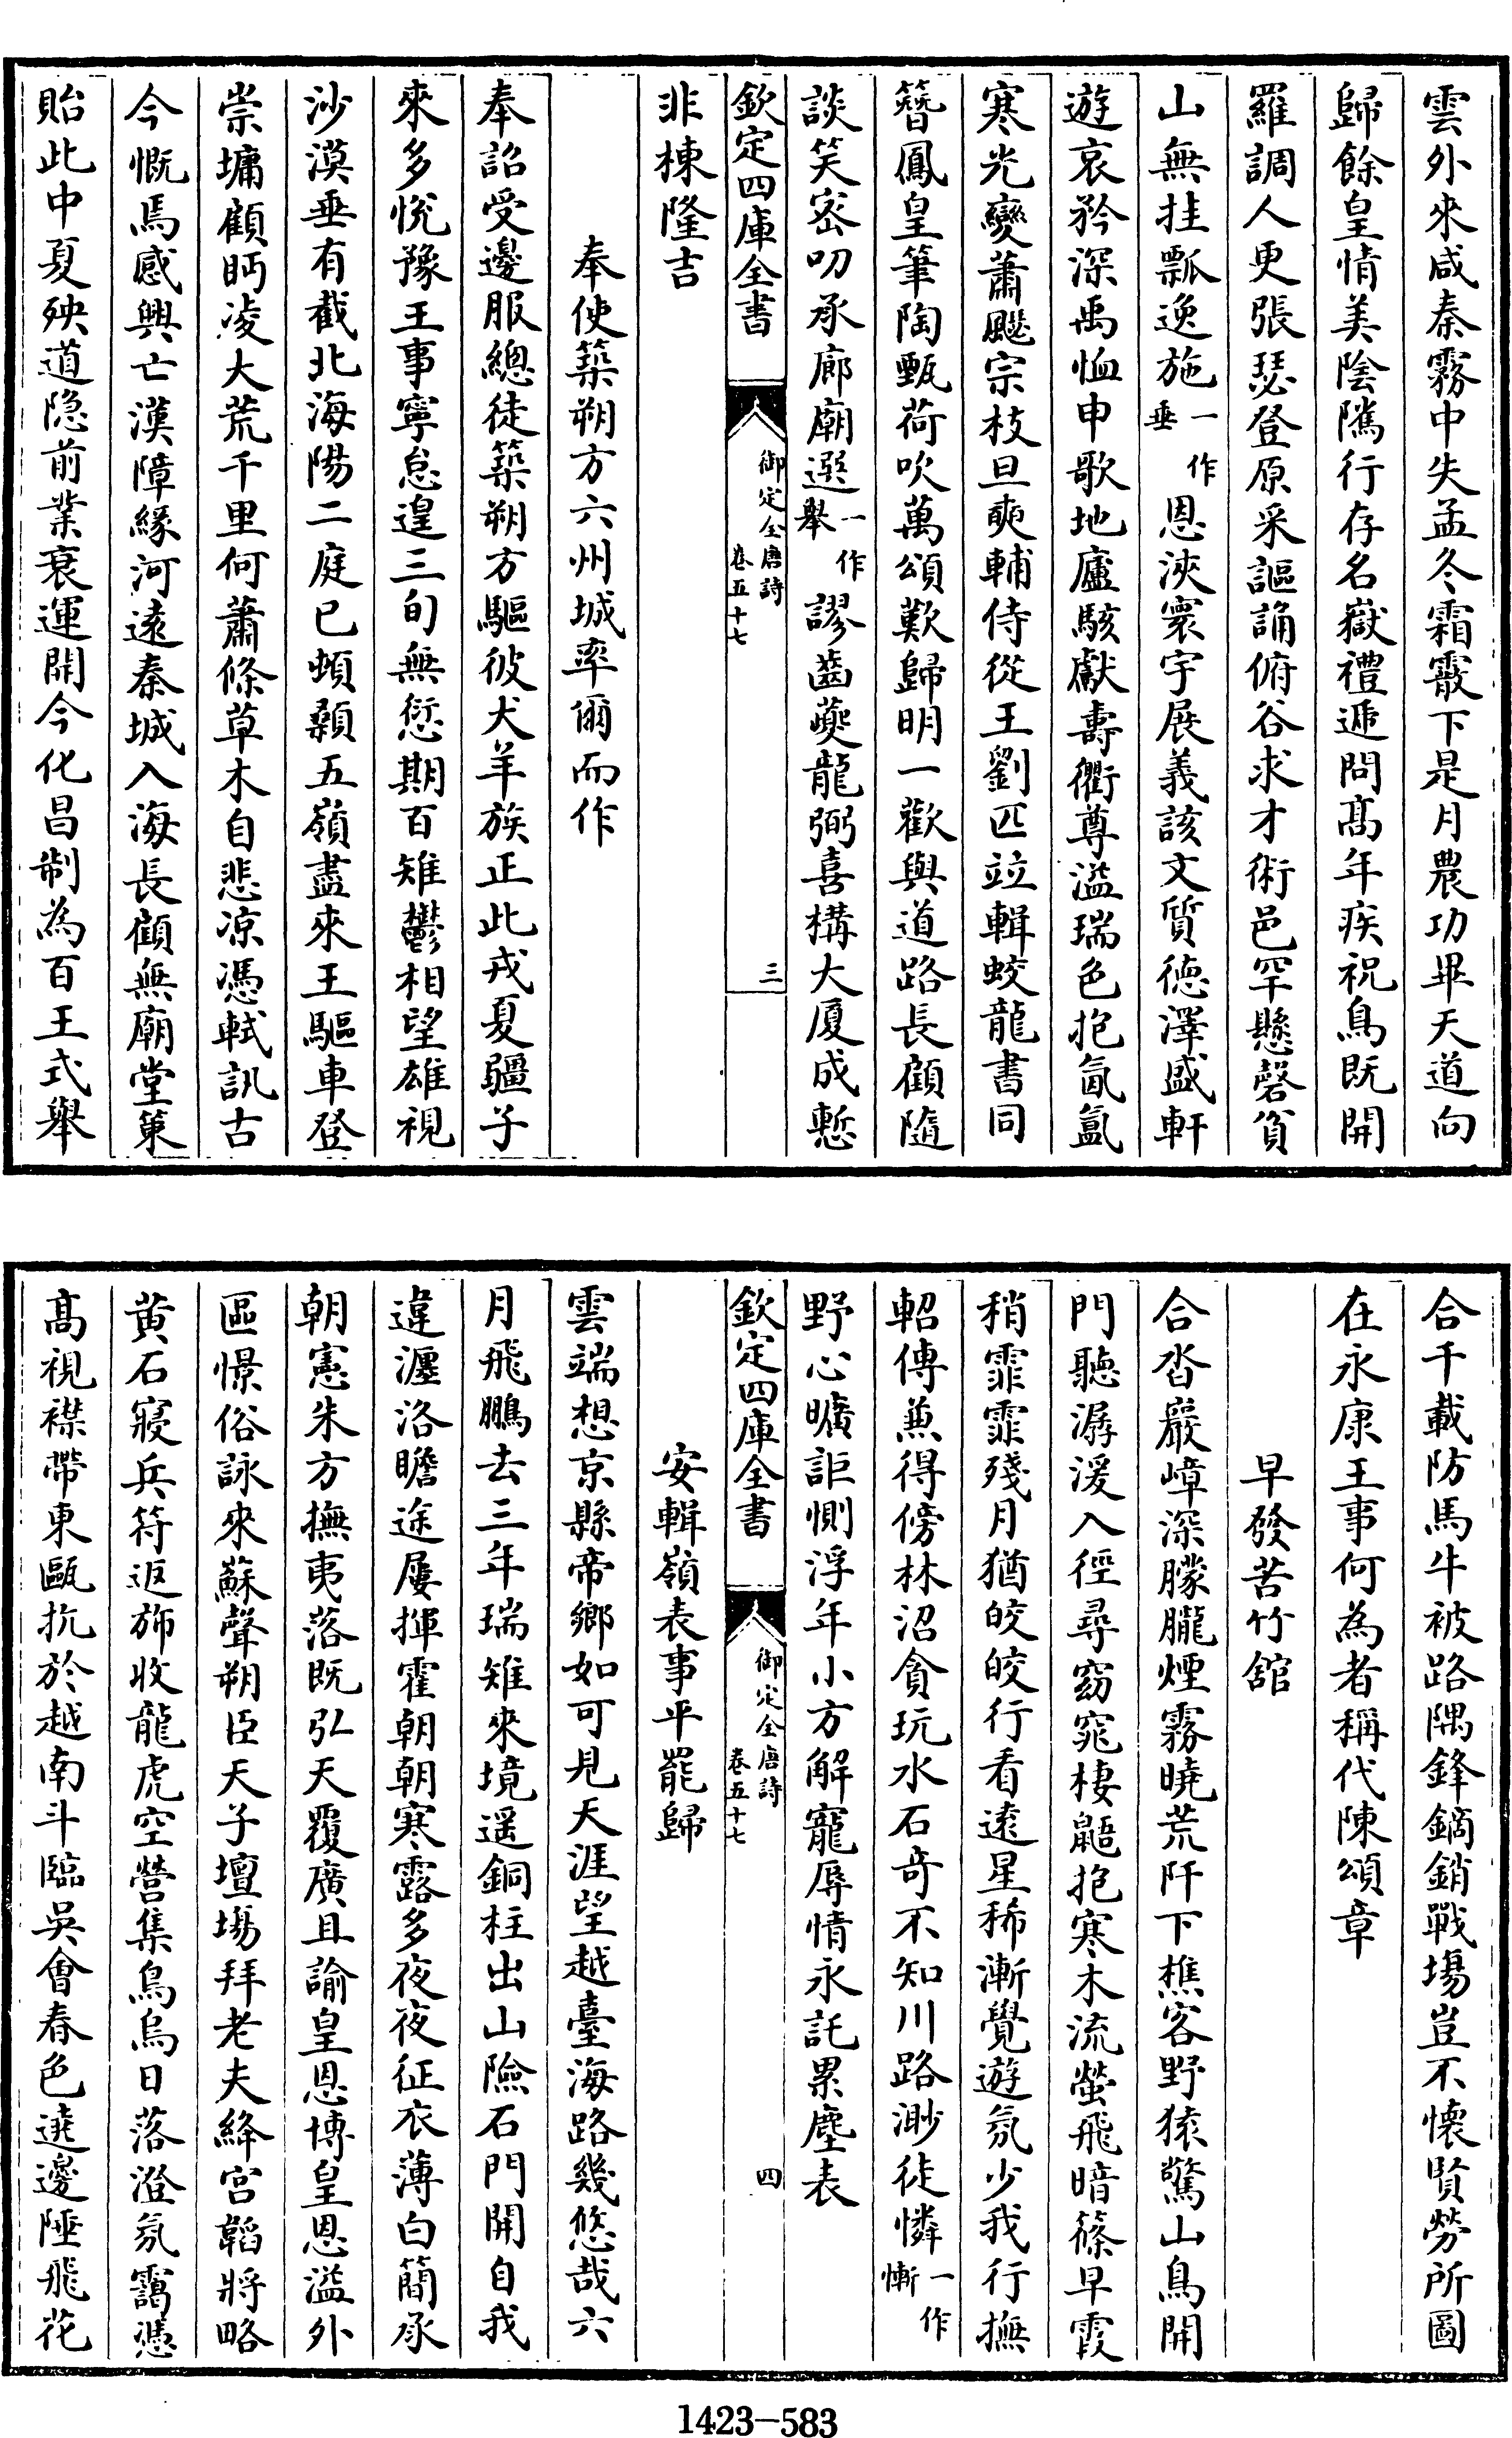 雲外來咸秦霧中失孟冬霜霰下是月農功畢天道向
歸餘皇情美陰隲行存名嶽禮遞問髙年疾祝鳥既開
羅調人更張瑟登原采謳誦俯谷求才術邑罕懸磬貧
山無挂瓢逸施一作垂恩浹寰宇展義該文質德澤盛軒
遊哀矜深禹恤申歌地廬駭獻壽衢尊溢瑞色抱氤氳
寒光變蕭飋宗枝旦奭輔侍從王劉匹竝輯蛟龍書同
簪鳳皇筆陶甄荷吹萬頌歎歸明一歡與道路長顧隨
談笑密叨承廊廟選一作舉謬齒夔龍弼喜構大厦成慙
欽定四庫全書
御定全唐詩
卷五十七
三
非棟隆吉
奉使築朔方六州城率爾而作
奉詔受邊服總徒築朔方驅彼犬羊族正此戎夏疆子
來多悅豫王事寧怠遑三旬無愆期百雉鬱相望雄視
沙漠垂有截北海陽二庭已頓顙五嶺盡來王驅車登
崇墉顧眄凌大荒千里何蕭條草木自悲凉憑軾訊古
今慨焉感興亡漢障緣河遠秦城入海長顧無廟堂策
貽此中夏殃道隐前業衰運開今化昌制為百王式舉
合千載防馬牛被路隅鋒鏑銷戰塲豈不懷賢勞所圖
在永康王事何為者稱代陳頌章
早發苦竹舘
合沓巖嶂深朦朧煙霧曉荒阡下樵客野猿驚山鳥開
門聽潺湲入徑尋窈窕棲鼯抱寒木流螢飛暗篠早霞
稍霏霏殘月猶皎皎行看遠星稀漸覺遊氛少我行撫
軺傳兼得傍林沼貪玩水石奇不知川路渺徒憐一作慚
野心曠詎惻浮年小方解寵辱情永託累塵表
欽定四庫全書
御定全唐詩
卷五十七
四
安輯嶺表事平罷歸
雲端想京縣帝鄉如可見天涯望越臺海路幾悠哉六
月飛鵬去三年瑞雉來境遥銅柱出山險石門開自我
違瀍洛瞻途屢揮霍朝朝寒露多夜夜征衣薄白簡承
朝憲朱方撫夷落既弘天覆廣且諭皇恩博皇恩溢外
區憬俗詠來蘇聲朔臣天子壇塲拜老夫絳宫韜將略
黄石寢兵符返斾收龍虎空營集鳥烏日落澄氛靄憑
髙視襟帶東甌抗於越南斗臨吳會春色遶邊陲飛花
1423-583